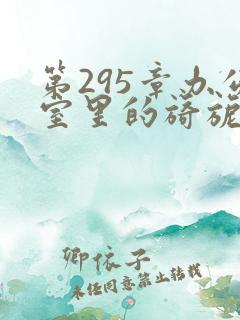 第295章办公
室里的旖旎
卿依子
未经同意禁止转载